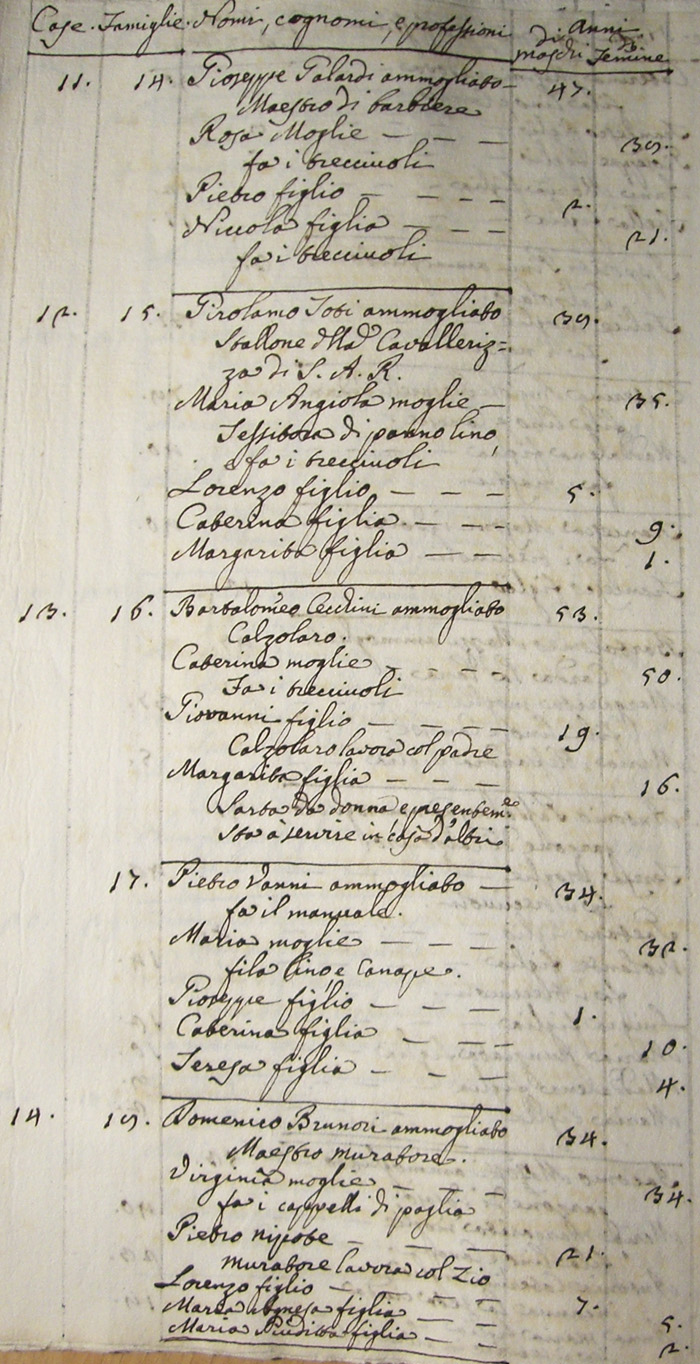 Case. Famiglie. Nomi, cognomi, e professioni Anni
di maschi di Femine
11. 14. Gioseppe Galardi ammogliato 47.
Maestro di barbiere
Rosa Moglie — — — 39.
fa i trecciuoli
Pietro figlio — — — — 2.
Niccola figlia — — — 21.
fa i trecciuoli
12. 15. Girolamo ammogliato 39.
Stallone della Cavalleriz=
za di S. A. R.
Maria Angiola moglie — 35.
Tessitora di panno lino,
e fa i trecciuoli
Lorenzo figlio — — — 5.
Caterina figlia — — — 9.
Margarita figlia — — 1.
13. 16. Bartolomeo Cecchini ammogliato 53.
Calzolaro.
Caterina moglie — — — 50.
Fa i trecciuoli
Giovanni figlio — — — — 19.
Calzolaro lavora col padre
Margarita figlia — — — 16.
Sarta da donna e presentem.e
sta à servire in casa d'altri
17. Pietro Vanni ammogliato — 34.
fa il manuale.
Maria moglie — — — 32.
fila lino, e canape.
Gioseppe figlio — — — 1.
Caterina figlia — — — 10.
Teresa figlia — — — 4.
14. 19. Domenico Brunori ammogliato 34.
Maestro muratore.
Virginia moglie — — — 34.
fa i cappelli di paglia
Pietro nipote — — — 21.
muratore lavora col Zio
Lorenzo figlio — — — 7.
Maria Agnesa figlia — — 5.
Maria Giuditta figlia — — 2.